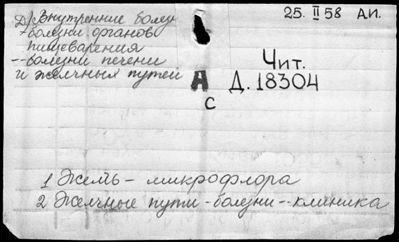 Д) Внутренние болез
- болезни органов
пищеварения
-- болезни печени
и желчных путей
25. II 58 А.И.
Чит.
Д. 18304
А
с
1 Желчь - микрофлора
2 Желчные пути - болезни -- клиника